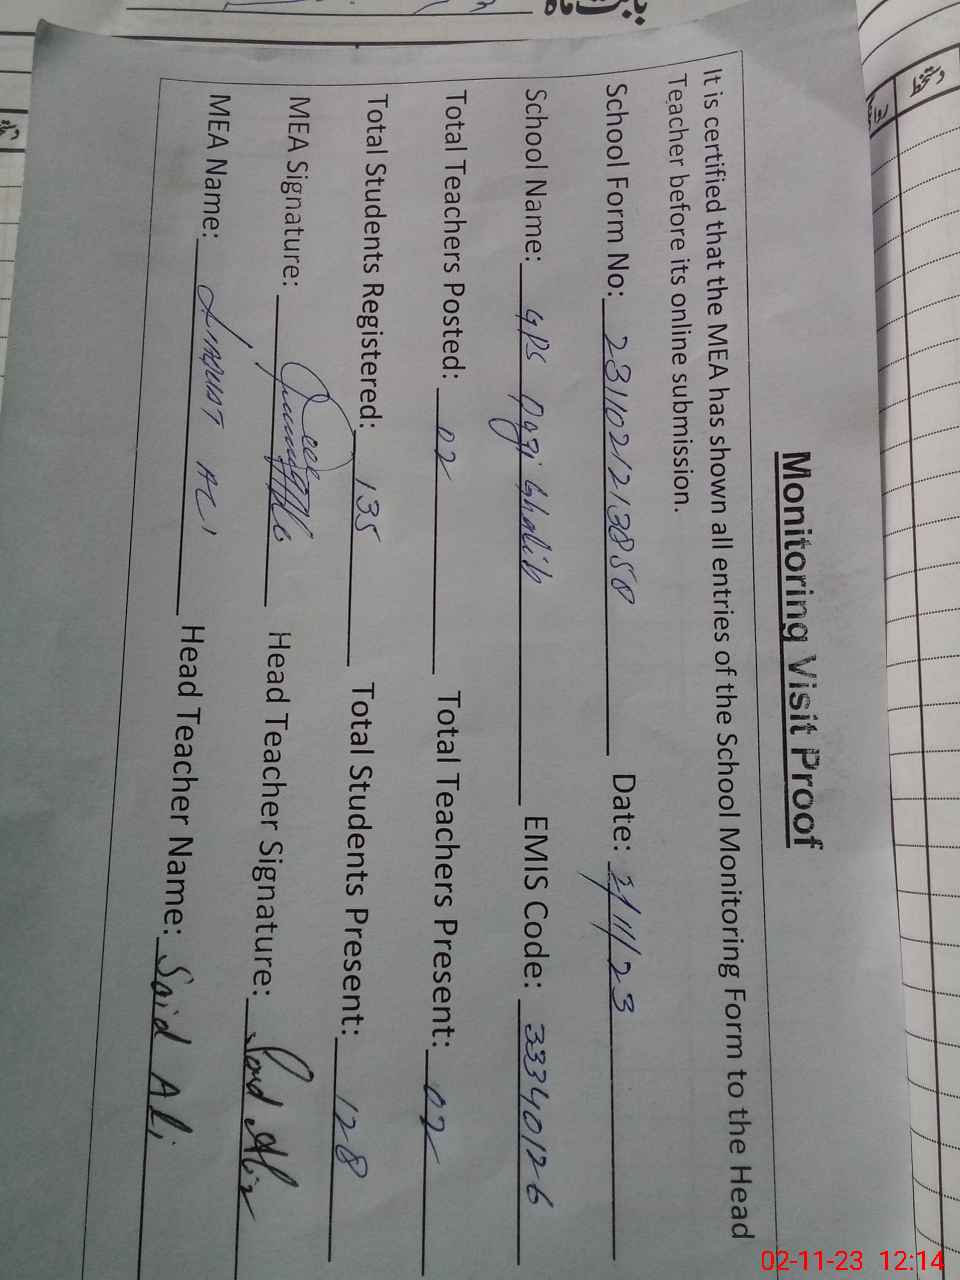 Monitoring Visit Proof
It is certified that the MEA has shown all entries of the School Monitoring Form to the Head
Teacher before its online submission.
School Form No: 2311021213858 Date: 2/11/23
School Name: GPS Pagi Ghalib EMIS Code: 33340126
Total Teachers Posted: 02 Total Teachers Present: 02
Total Students Registered: 135 Total Students Present: 128
MEA Signature: Head Teacher Signature: Said Ali
MEA Name: LIAQUAT ALI Head Teacher Name: Said Ali
02-11-23 12:14